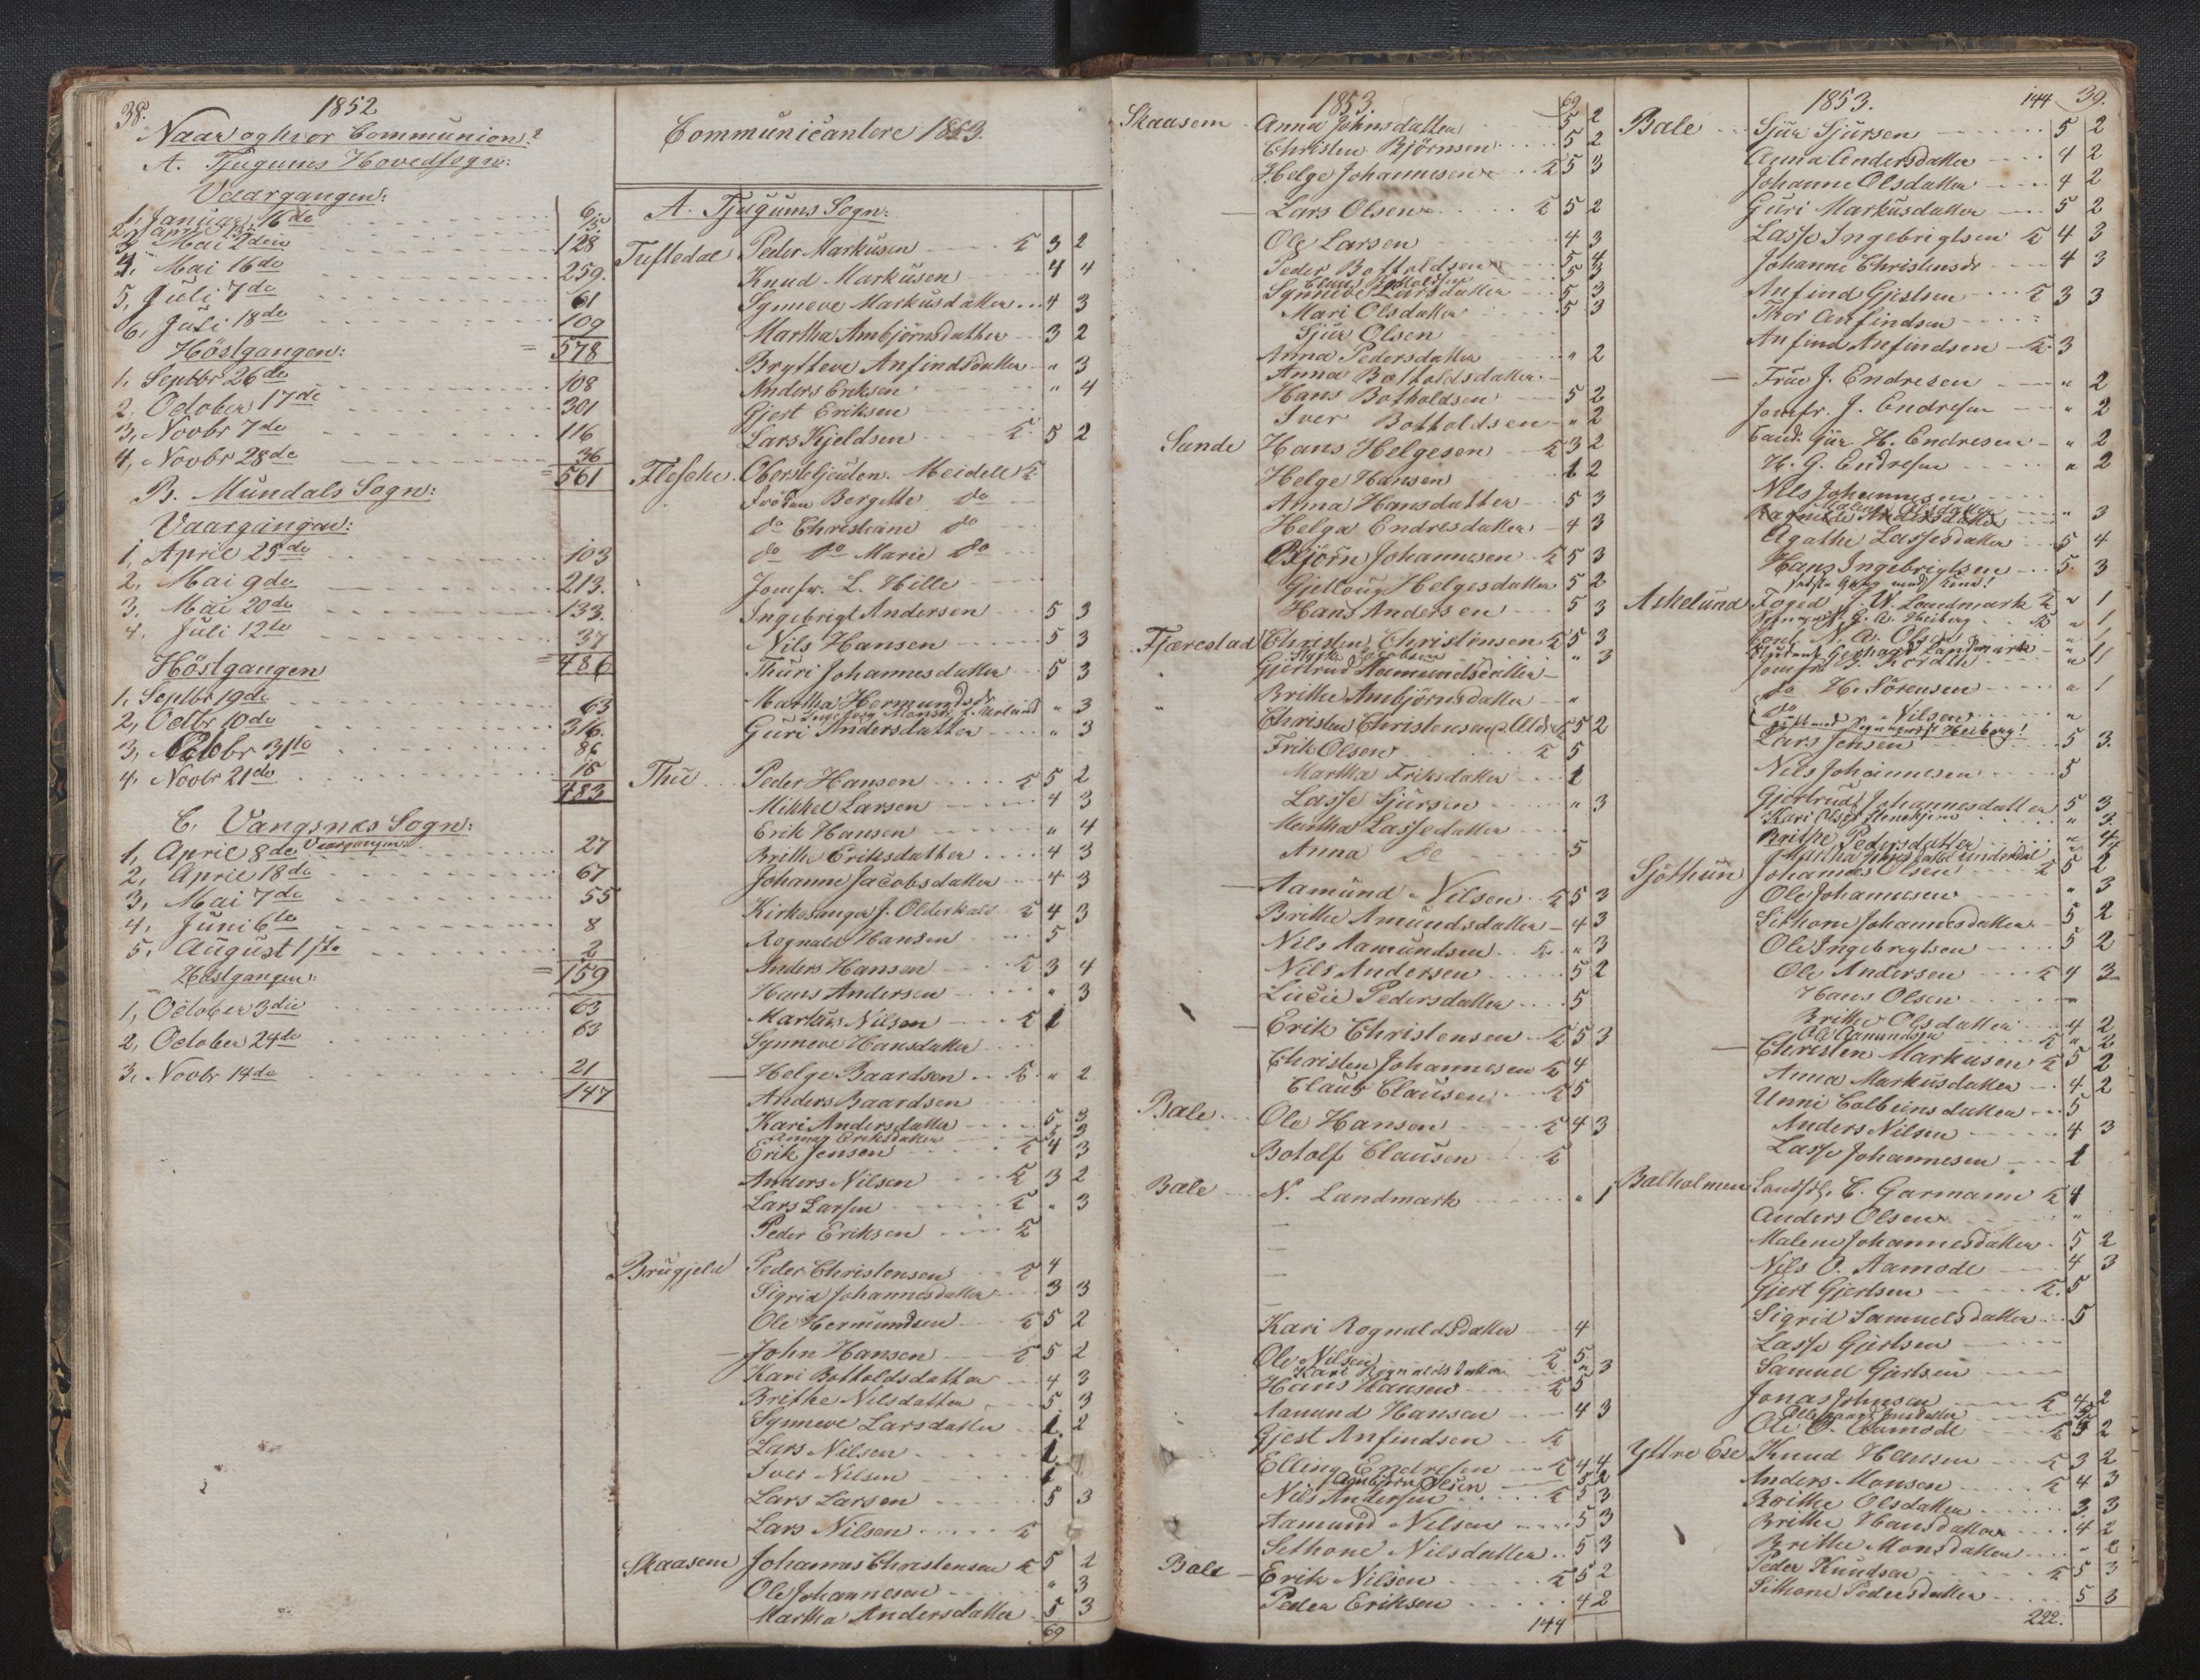 38.
1852
Naar og hvor Communion?
A. Tjugums Hovedsogn:
Vaargangen:
1, Januar 16de 6
2, April 12
3, Mai 2den 128
4, Mai 16de 259.
5, Juli 7de 61
6, Juli 18de 109
= 578
Höstgangen:
1, Septbr 26de 108
2, October 17de 301
3, Novbr 7de 116
4, Novbr 28de 36
= 561
B. Mundals Sogn:
Vaargangen:
1, April 25de 103
2, Mai 9de 213.
3, Mai 20de 133.
4, Juli 12te 37
= 486
Höstgangen
1, Septbr 19de 63
2, Octbr 10de 316.
3, Octobr 31te 86
4, Novbr 21de 18
483
C. Vangsnæs Sogn:
Vaargangen:
1, April 8de 27
2, April 18de 67
3, Mai 7de 55
4, Juni 6te 8
5, August 1ste 2
= 159
Höstgangen:
1, October 3die 63
2, October 24de 63
3, Novbr 14de 21
147
Communicantere 1853.
A. Tjugums Sogn:
Tuftedal Peder Markusen 3 2
Knud Markusen 4 4
Synneve Markusdatter 4 3
Martha Ambjörnsdatter 3 2
Brytteve Anfindsdatter " 3
Anders Eriksen " 4
Gjert Eriksen
Lars Kjeldsen 5 2
Flesche Oberstlieuten. Meidell
Fröken Borgitte do
do Christiane do
do do Marie do
Jomfr. L. Hille
Ingebrigt Andersen 5 3
Nils Hansen 5 3
Thuri Johannesdatter 5 3
Martha Hermundsdr " 3
Guri Andersdatter " 3
Thue Peder Hansen 5 2
Mikkel Larsen 4 3
Erik Hansen " 4
Brithe Eriksdatter 4 3
Johanne Jacobsdatter 4 3
Kirkesanger J. Olderkald 4 3
Rognald Hansen 5
Anders Hansen 3 4
Hans Andersen " 3
Markus Nilsen 1
Synneve Hansdatter
Helge Baardsen " 2
Anders Baardsen
Kari Andersdatter 5 3
Anna Eriksdatter 5 3
Erik Jensen 4 3
Anders Nilsen 3 2
Lars Larsen " 3
Peder Eriksen
Brugjeld Peder Christensen 4
Sigrid Johannesdatter 3 3
Ole Hermundsen 5 2
John Hansen 5 2
Kari Bottoldsdatter 4 3
Brithe Nilsdatter 5 3
Synneve Larsdatter 1 2
Lars Nilsen 1
Iver Nilsen 1
Lars Larsen 5 3
Lars Nilsen
Skaasem Johannes Christensen 5 2
Ole Johannesen " 3
Martha Andersdatter 5 3
69
1853. 69
Skaasem Anna Johnsdatter 5 2
Christen Björnsen 5 2
Helge Johannesen 5 3
Lars Olsen 5 2
Ole Larsen 4 3
Peder Bottoldsen 5 4
Claus Bottoldsen 5 3
Synneve Larsdatter 5 3
Mari Olsdatter 5 3
Sjur Olsen
Anna Pedersdatter " 2
Anna Bottoldsdatter
Hans Botholdsen 5 2
Iver Bottoldsen " 2
Sande Hans Helgesen 3 2
Helge Hansen 1 2
Anna Hansdatter 5 3
Helga Endresdatter 4 3
Björn Johannesen 5 3
Gjellaug Helgesdatter 5 2
Hans Andersen 5 3
Fjærestad Christen Christensen 5 3
Gjertrud Hermundsdatter " 3
Brithe Ambjörnsdatter "
Christen Christensen 5 2
Frik Olsen 5
Martha Friksdatter 1
Lasse Sjursen " 3
Martha Lassedatter
Anna do 5
Aamund Nilsen 5 3
Brithe Amundsdatter 4 3
Nils Aamundsen " 3
Nils Andersen 5 2
Lucie Pedersdatter 5
Erik Christensen 5 3
Christen Johannesen 4
Claus Clausen 5
Bale Ole Hansen 4 3
Botolf Clausen
Bale N. Landmark " 1
Kari Rognaldsdatter 4
Ole Nilsen 5
Kari Rognaldsdatter " 3
Hans Hansen 5
Aamund Hansen 4 3
Gjest Anfindsen
Elling Endresen 4 4
Ambjörn Olsen 5 2
Nils Andersen 5 3
Aamund Nilsen 5 3
Sithone Nilsdatter 5 3
Bale Erik Nilsen 5 2
Peder Eriksen 4 2
144
1853. 144 39.
Bale Sjur Sjursen 5 2
Anna Andersdatter 4 2
Johanne Olsdatter 4 2
Guri Markusdatter 5 2
Lasse Ingebrigtsen 4 3
Johanne Christensdr 4 3
Anfind Gjertsen 3 3
Thor Anfindsen
Anfind Anfindsen 3
Frue J. Endresen " 2
Jomfr. J. Endresen " 2
Cand. jur. H. Endresen " 2
H. G. Endresen " 2
Nils Johannesen
Malene Olsdatter " 3
Ragnilde Andersdatter
Agathe Lassesdatter 5 4
Hans Ingebrigtsen 5 3
sidste Gang med Kone!
Askelund Foged J. W. Landmark " 1
Heiberg " 1
Cand. N. A. Olsen " 1
Student Gerhard Landmark " 1
Jomfru G. Kordth " 1
do H. Sörensen " 1
do Nilsen "
Heiberg!
Lars Jensen 5 3
Nils Johannesen 5
Gjertrud Johannesdatter 5 3
Kari Olsdr " 3
Brithe Pedersdatter " 4
Martha
Sjöthun Johannes Olsen 5 2
Ole Johannesen " 3
Sithone Johannesdatter 5 2
Ole Ingebrigtsen 5 2
Ole Andersen 4 3
Hans Olsen "
Brithe Olsdatter 4 2
Ole Aamundsen " 2
Christen Markusen 5 2
Anna Markusdatter 4 2
Unni Colbeinsdatter 5
Anders Nilsen 4 3
Lasse Johannesen 1
Balholmen C. Garmann 4
Anders Olsen "
Malene Johannesdatter 5 2
Nils O. Aamodt 4 3
Gjert Gjertsen 5
Sigrid Samuelsdatter 5
Lasse Gjertsen
Samuel Gjertsen
Jonas Johnsen 4 2
Ole O. Aamodt 5 2
Yttre Ese Knud Hansen 3 2
Anders Monsen 4 3
Brithe Olsdatter 3 3
Brithe Hansdatter 4 2
Brithe Monsdatter " 2
Peder Knudsen 5 3
Sithone Pedersdatter 5 3
222.